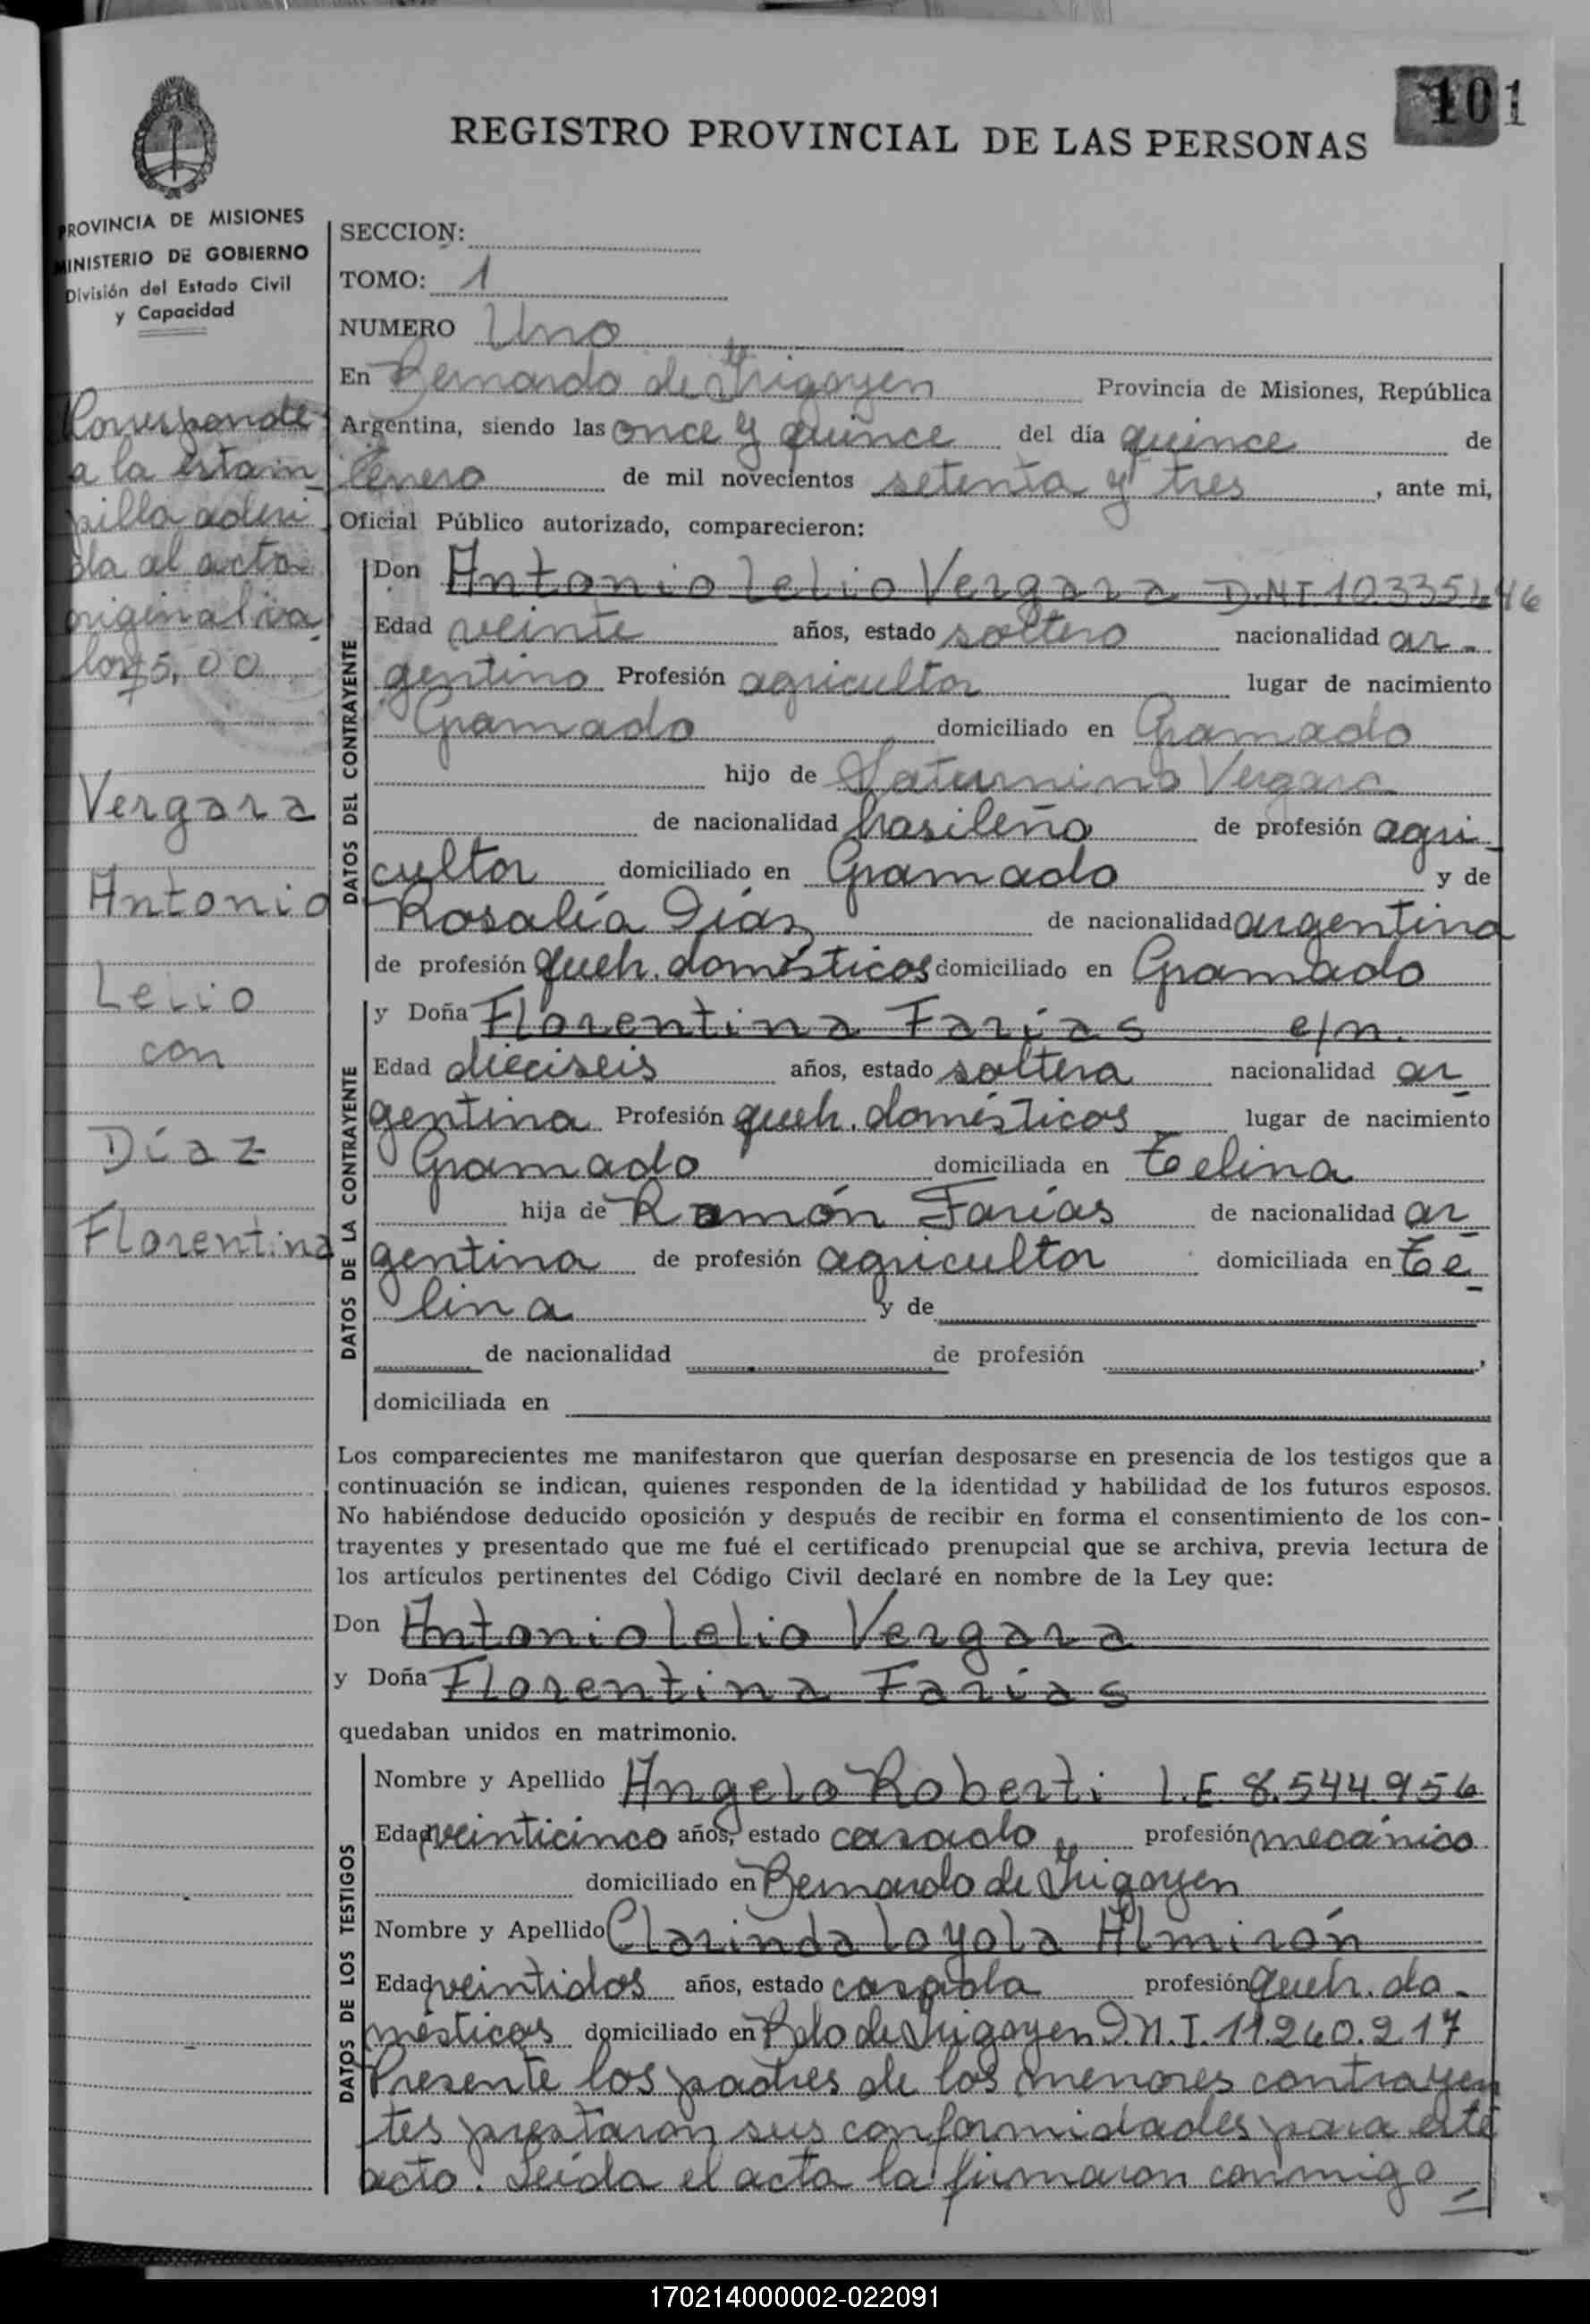 101
REGISTRO PROVINCIAL DE LAS PERSONAS
PROVINCIA DE MISIONES
MINISTERIO DE GOBIERNO
División del Estado Civil
y Capacidad
Corresponde
a la estam
pilla adheri
da al acta
original va
lor $5,00
Vergara
Antonio
Lelio
con
Díaz
Florentina
SECCION:
TOMO: 1
NUMERO Uno
En Bernardo de Irigoyen Provincia de Misiones, República
Argentina, siendo las once y quince del día quince de
Enero de mil novecientos setenta y tres, ante mi,
Oficial Público autorizado, comparecieron:
DATOS DEL CONTRAYENTE
Don Antonio Lelio Vergara D.N.I 10.335.446
Edad veinte años, estado soltero nacionalidad ar-
gentino Profesión agricultor lugar de nacimiento
Gramado domiciliado en Gramado
hijo de Saturnino Vergara
de nacionalidad brasileño de profesión agri
cultor domiciliado en Gramado y de
Rosalía Díaz de nacionalidad argentina
de profesión queh. domésticos domiciliado en Gramado
DATOS DE LA CONTRAYENTE
y Doña Florentina Farías e/n.
Edad dieciseis años, estado soltera nacionalidad ar
gentina Profesión queh. domésticos lugar de nacimiento
Gramado domiciliada en Celina
hija de Ramón Farías de nacionalidad ar
gentina de profesión agricultor domiciliada en Ce
lina y de
de nacionalidad de profesión ,
domiciliada en
Los comparecientes me manifestaron que querían desposarse en presencia de los testigos que a
continuación se indican, quienes responden de la identidad y habilidad de los futuros esposos.
No habiéndose deducido oposición y después de recibir en forma el consentimiento de los con-
trayentes y presentado que me fué el certificado prenupcial que se archiva, previa lectura de
los artículos pertinentes del Código Civil declaré en nombre de la Ley que:
Don Antonio Lelio Vergara
y Doña Florentina Farías
quedaban unidos en matrimonio.
DATOS DE LOS TESTIGOS
Nombre y Apellido Angelo Roberti L.E. 8.544.956
Edad veinticinco años, estado casado profesión mecánico
domiciliado en Bernardo de Irigoyen
Nombre y Apellido Clarinda Loyola Almirón
Edad veintidos años, estado casada profesión queh. do-
mésticos domiciliado en Bdo de Irigoyen D.N.I. 11.260.217
Presente los padres de los menores contrayen
tes prestaron sus conformidades para este
acto. Leída el acta la firmaron conmigo
170214000002-022091